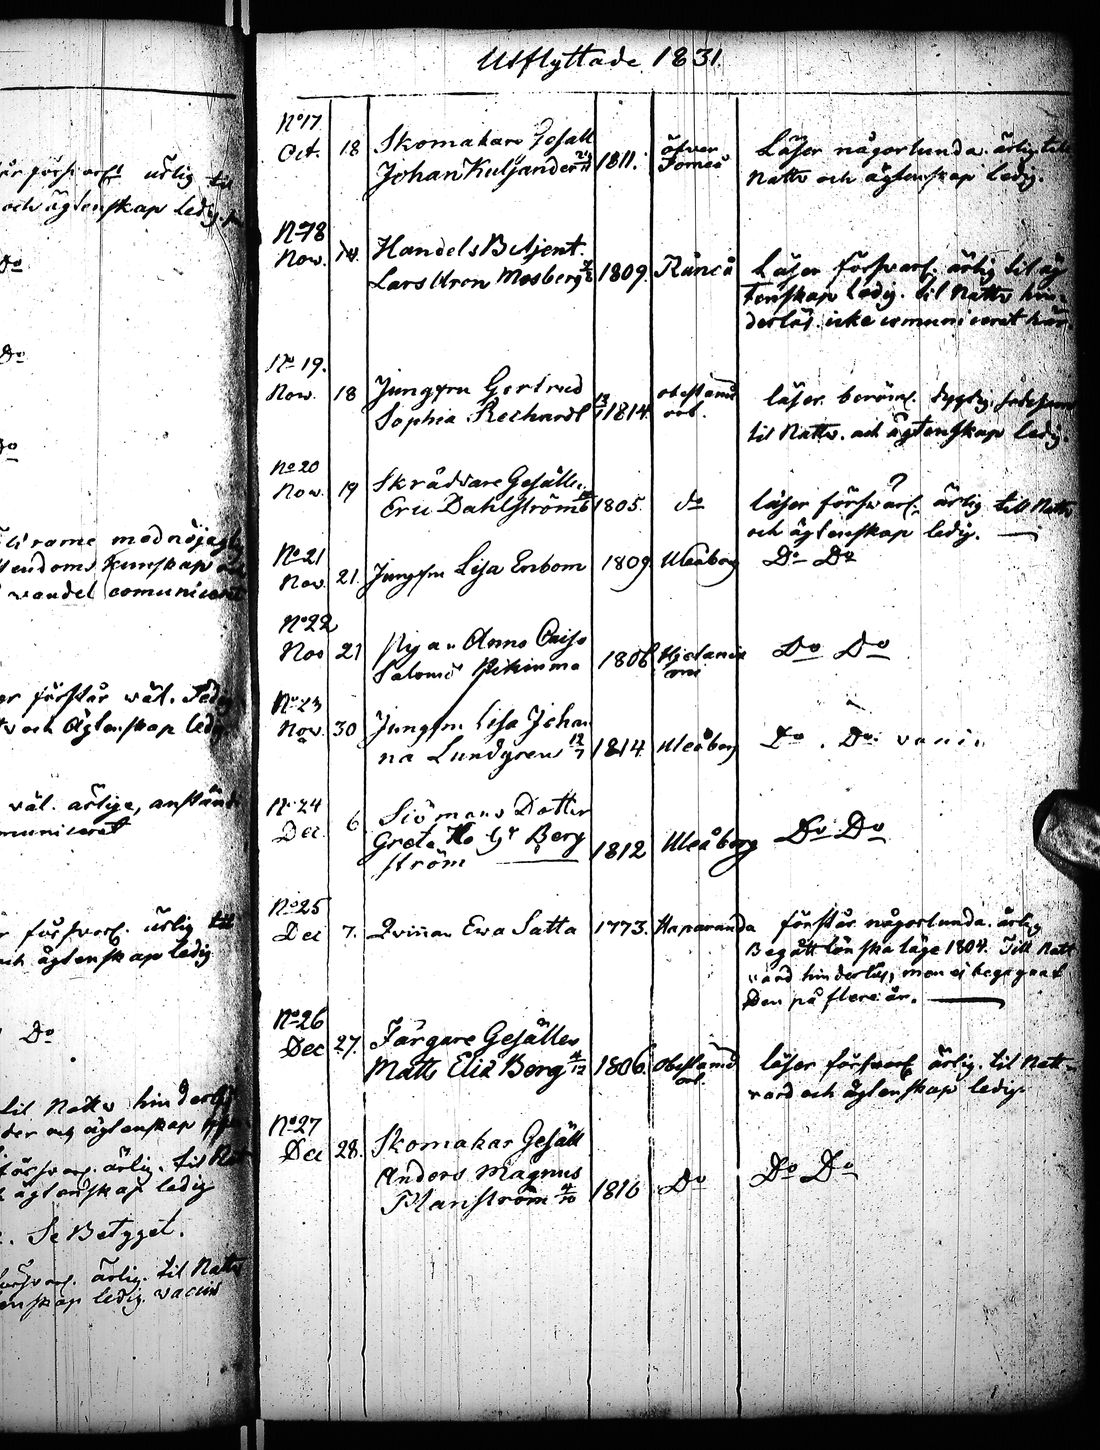 är försvarl. ärlig til
och ägtenskap ledig.
Do
Do
Do
med nöjagtig
kunskap och
vandel comunicerat
förstår väl. Ledig
och Ägtenskap ledig
väl. ärlige, anständ
municeret
försvarl. ärlig till
och ägtenskap ledig
Do
til Nattv hinderlös
der och ägtenskap
försvarl. ärlig. til Nat
ägtenskap ledig
Se Betyget.
försvarl. ärlig. til Nattv
enskap ledig. vaccin
Utflyttade 1831
No 17
Oct. 18 Skomakare Gesäll
Johan Kuljander 1811. öfver Torneå
Läser någorlunda. ärlig till
Nattv och ägtenskap ledig.
No 18
Nov. 14. Handels B Ajent.
Lars Uron Mosberg 1809.
Läser försvarl. ärlig til äg
tenskap ledig. til Nattv hin-
derlös. icke comuniceret här.
No 19.
Nov. 18 Jungfru Gertrud
Sophia Rechardt 13/1 1814. obestämd ort.
läser beröml. dygdig.
til Nattv. och ägtenskap ledig.
No 20
Nov. 19 Skräddare Gesällen
Eric Dahlström 1805. do
läser försvarl. ärlig till Nattv
och ägtenskap ledig. —
No 21
Nov. 21. Jungfru Lisa Enbom 1809 Uleåborg Do Do
No 22
Nov 21 Pigan Anna Caisa
Salomo 1806 Do Do
No 23
Nov. 30 Jungfru Lisa Johan
na Lundgren 12/7 1814 Uleåborg Do. Do.
No 24
Dec. 6. Siömans Dotter
Greta Berg
ström — 1812 Uleåborg Do Do
No 25
Dec 7. Qvinnan Ewa Satta 1773. Haparanda
förstår någorlunda. ärlig
Begått lönskaläge 1804. Till Natt
vard hinderlös, men ej begagnat
den på flere år. —
No 26
Dec 27. Färgare Gesällen
Matts Elia Berg 4/12 1806. Obestämd ort.
läser försvarl ärlig. til Natt-
vard och ägtenskap ledig.
No 27
Dec 28. Skomakar Gesäll
Anders Magnus
Planström 4/10 1816 Do Do Do